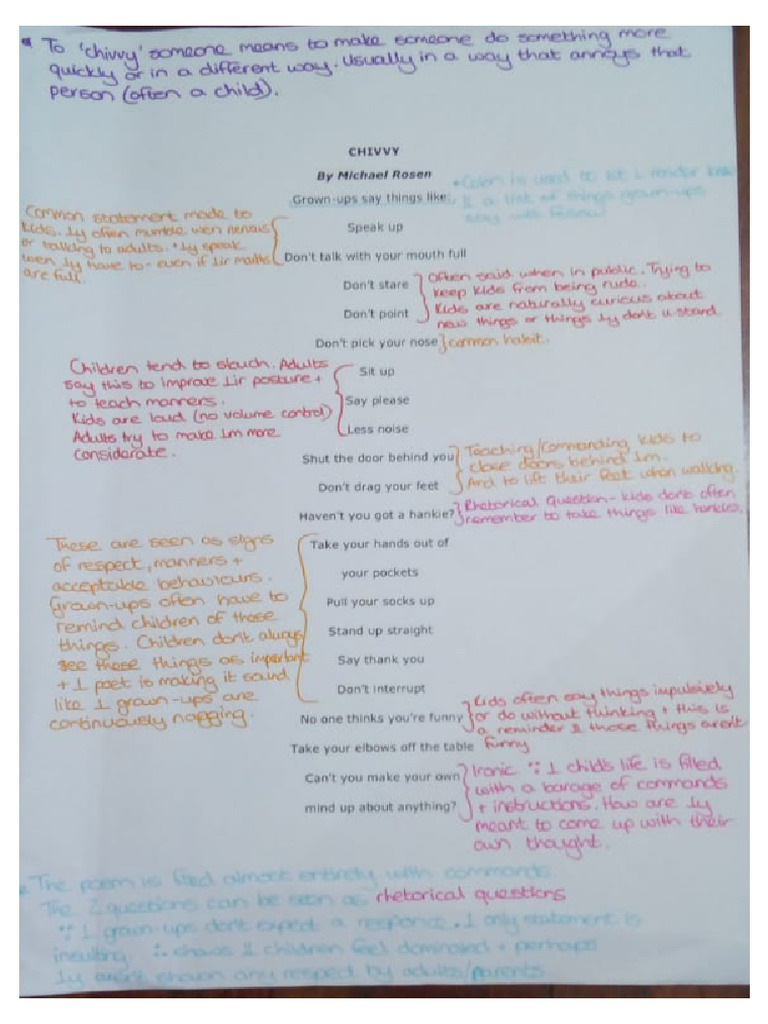 * To 'chivvy' someone means to make someone do something more
quickly or in a different way. Usually in a way that annoys that
person (often a child).
CHIVVY
By Michael Rosen
Grown-ups say things like:
* Colon is used to let 1 reader know
1 a list of things grown-ups
say will follow
Common statement made to
kids. 1y often mumble wen nervous
or talking to adults. * 1y speak
wen 1y have to - even if 1ir mouths
are full.
Speak up
Don't talk with your mouth full
Don't stare
Don't point
Often said when in public. Trying to
keep kids from being rude.
Kids are naturally curious about
new things or things 1y don't u.stand
Don't pick your nose
common habit.
Children tend to slouch. Adults
say this to improve 1ir posture +
to teach manners.
Kids are loud (no volume control)
Adults try to make 1m more
considerate.
Sit up
Say please
Less noise
Shut the door behind you
Don't drag your feet
Teaching/commanding kids to
close doors behind 1m.
And to lift their feet when walking.
Haven't you got a hankie?
Rhetorical Question - kids don't often
remember to take things like hankies.
These are seen as signs
of respect, manners +
acceptable behaviours.
Grown-ups often have to
remind children of those
things. Children don't always
see those things as important
+ 1 poet is making it sound
like 1 grown-ups are
continuously nagging.
Take your hands out of
your pockets
Pull your socks up
Stand up straight
Say thank you
Don't interrupt
No one thinks you're funny
Kids often say things impulsively
or do without thinking + this is
a reminder 1 those things aren't
funny
Take your elbows off the table
Can't you make your own
mind up about anything?
Ironic ∵ 1 child's life is filled
with a barage of commands
+ instructions. How are 1y
meant to come up with their
own thought.
* The poem is filled almost entirely with commands.
The 2 questions can be seen as rhetorical questions
∵ 1 grown-ups don't expect a response. 1 only statement is
insulting. ∴ shows 1 children feel dominated + perhaps
1y aren't shown any respect by adults/parents